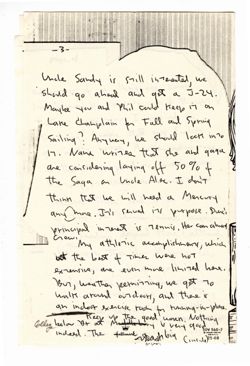 -3-
Uncle Sandy is still interested, we
should go ahead and get a J-24.
Maybe you and Phil could keep it on
Lake Champlain for Fall and Spring
Sailing? Anyway, we should look into
it. Name writes that she and gaga
are considering laying off 50% of
the Saga on Uncle Alec. I don't
think that we will need a Mercury
any more. It's served its purpose.
principal interest is tennis. He can always
Crew.
My athletic accomplishments, which
at the best of times were not
extensive, are even more limited here.
But, weather permitting, we get to
walk around outdoors, and there's
an indoor exercise room for running-in-place
Keep up the good work. Nothing
below B+ at is very good
indeed. The